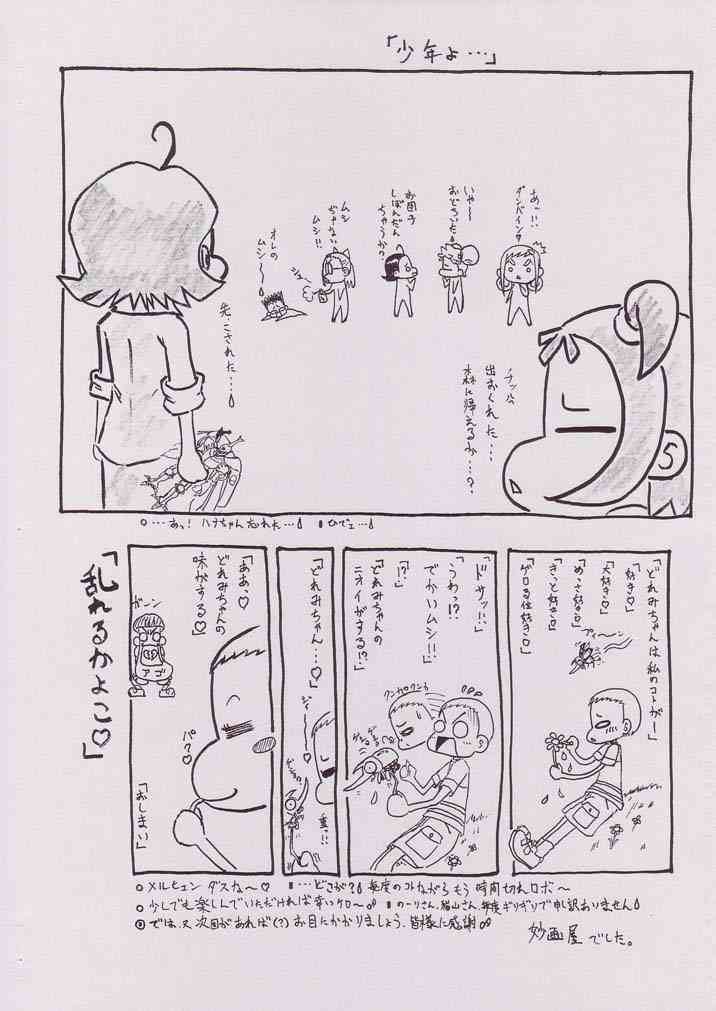 「少年よ…」
あっ!!
ダンバイン!?
いや〜
おどろいた
お団子
しぼんだん
ちゃうか?
ムシ
ぢゃない
ムシ!!
シュー
オレの
ムシ〜〜
先、こされた…
出おくれた…
森に帰えるか…?
○…あっ!ハナちゃん忘れた… ▮ひでェ…
「どれみちゃんは私のコトがー」
「好き♡」
「大好き♡」
「めっさ好き♡」
「きっと好き♡」
「ゲロる位好き♡」
プィ〜ン
「ドサッ!!」
「うわっ!?
でかいムシ!!」
「!?」
「どれみちゃんの
ニオイがする!?」
クンカクンカ
「どれみちゃん…♡」
ジー
「ああっ♡
どれみちゃんの
味がする♡」
ガーン
アゴ
パク♡
「おしまい」
「乱れるかよこ♡」
○メルヒェンダスな〜♡ ▮…どこが? 毎度のコトながらもう時間切れロボ〜
○少しでも楽しんでいただければ幸いケロ〜 ▮のーりさん、猫山さん、毎度ギリギリで申し訳ありません
◎では、又次回があれば(?)お目にかかりましょう、皆様に感謝
妙画屋でした。